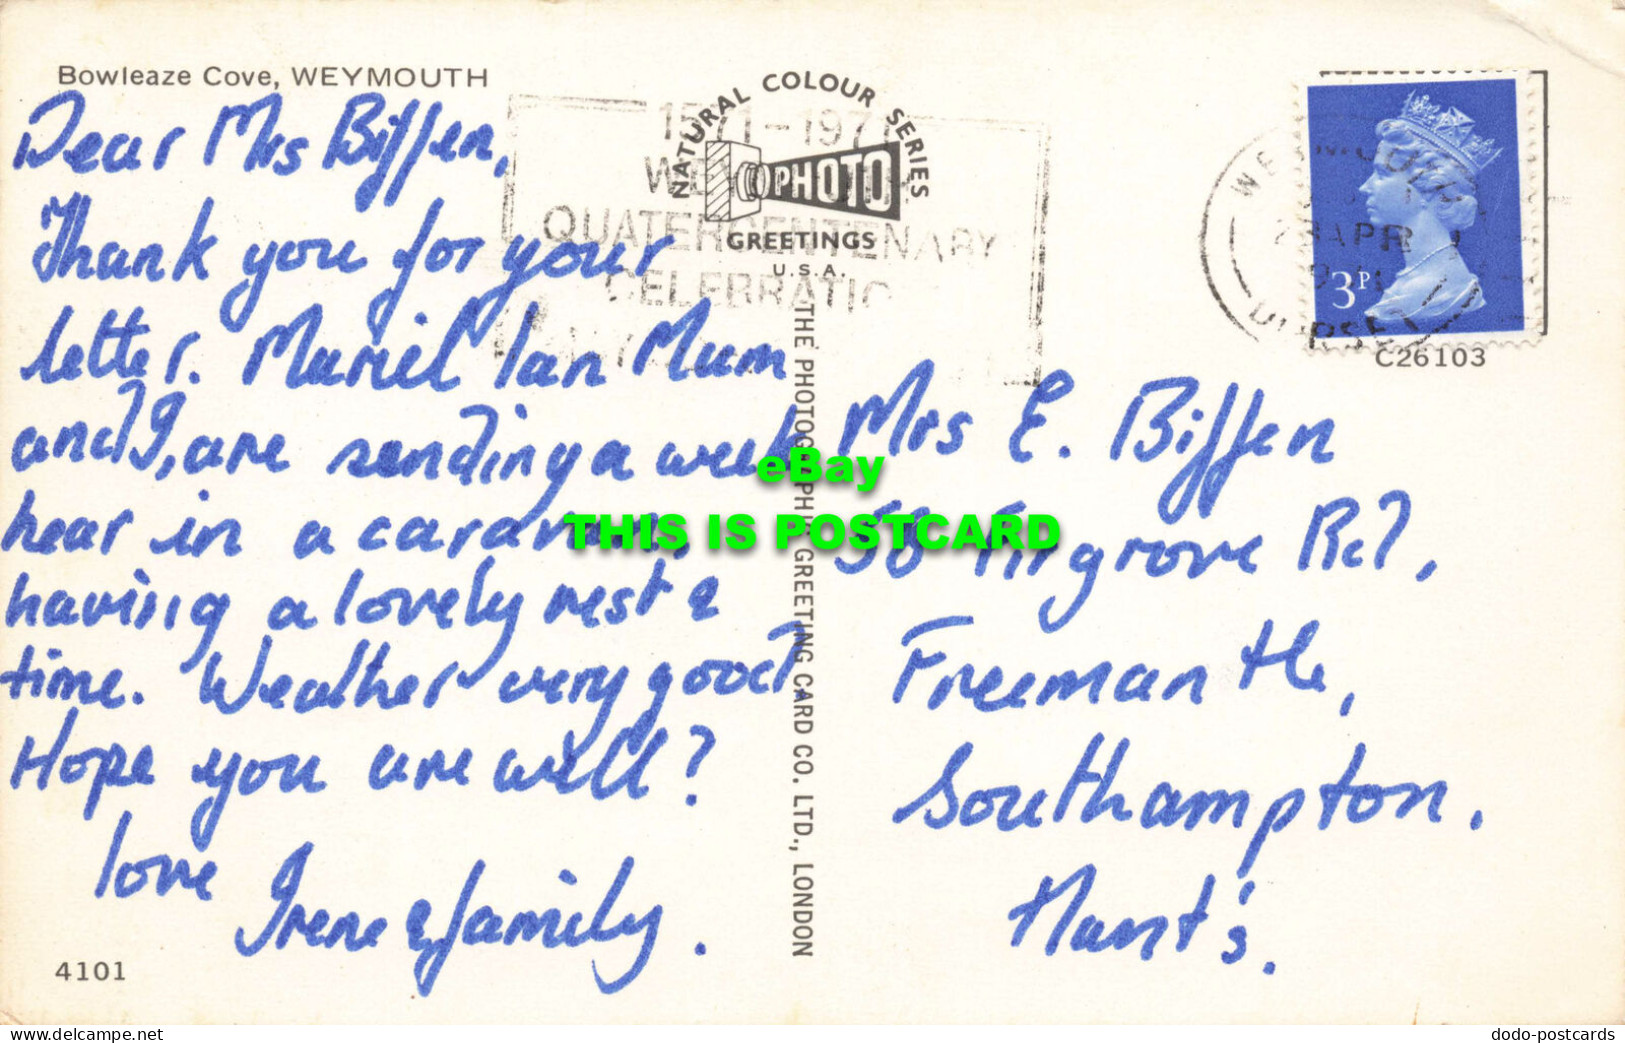 Bowleaze Cove, WEYMOUTH
Dear Mrs Biffen,
Thank you for your
letter. Muriel Ian Mum
and I, are sending a week
hear in a caravan,
having a lovely rest &
time. Weather very good,
Hope you are well?
love
Irene & family.
4101
NATURAL COLOUR SERIES
PHOTO
GREETINGS
U.S.A.
1571-1971
QUATERCENTENARY
THE PHOTOGRAPHIC GREETING CARD CO. LTD., LONDON
WEYMOUTH
28 APR
DORSET
3P
C26103
Mrs E. Biffen
58 Firgrove Rd,
Freemantle,
Southampton.
Hant's.
eBay
THIS IS POSTCARD
www.delcampe.net
dodo-postcards